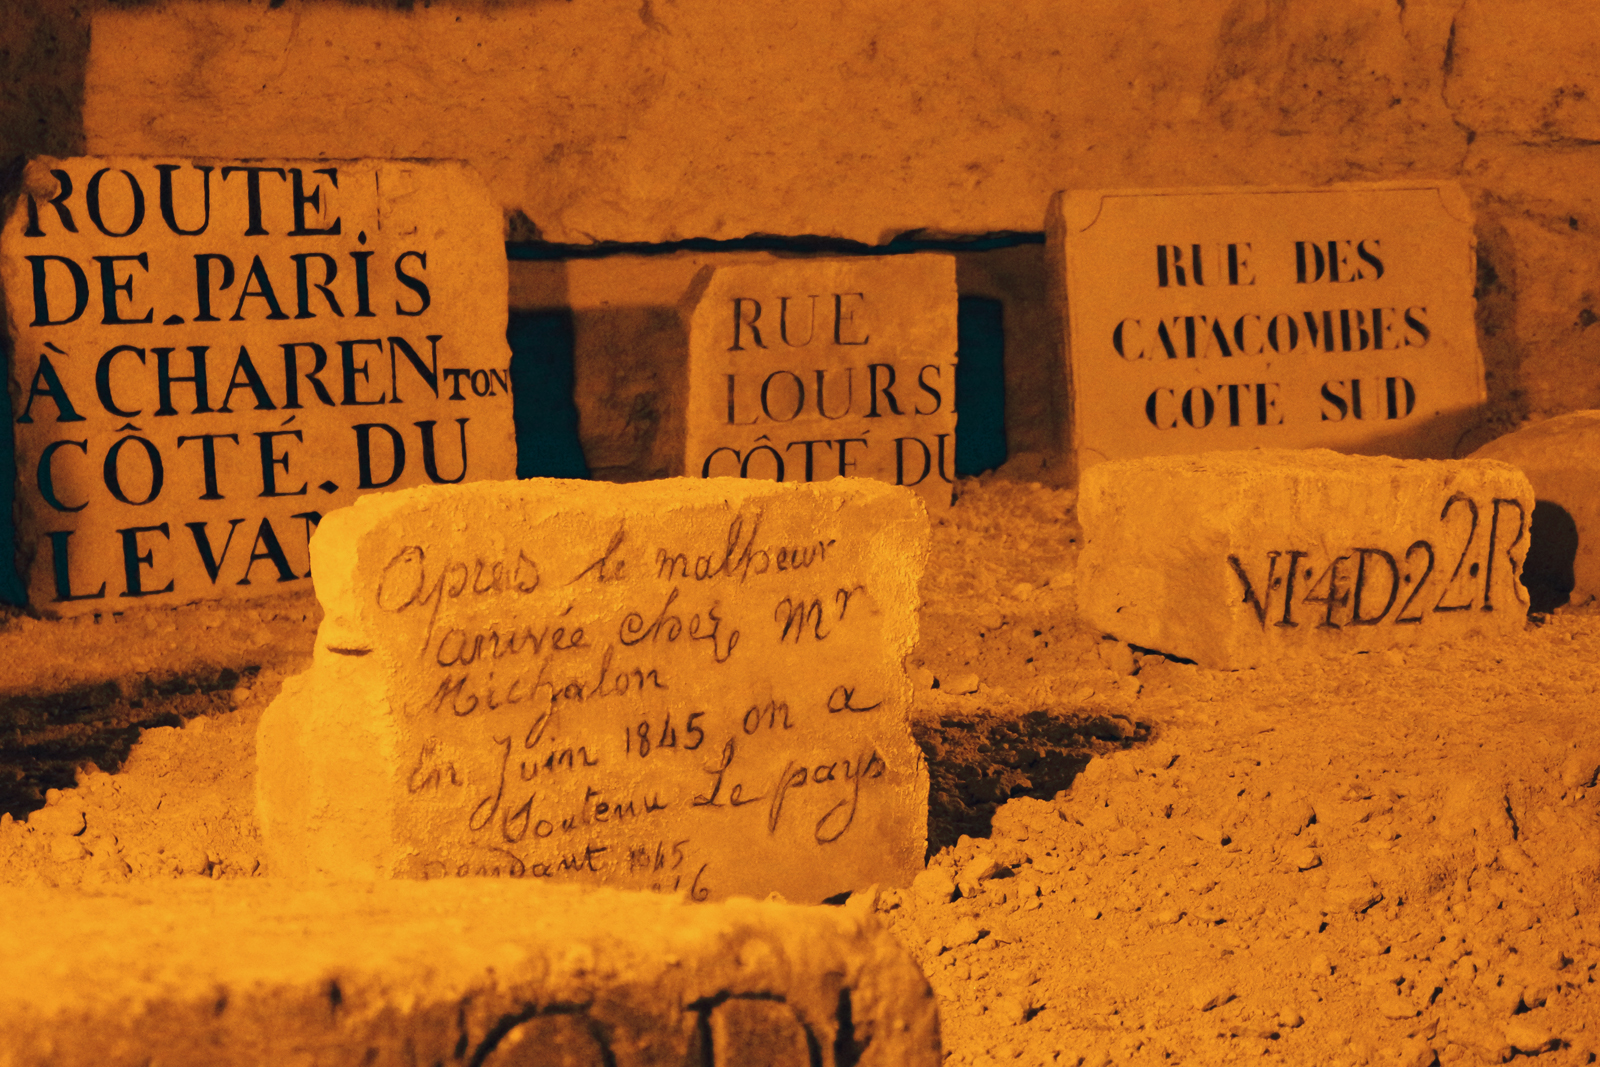 ROUTE.
DE.PARIS
À CHARENTON
CÔTÉ.DU
LEVAN
RUE
LOURS
CÔTÉ DU
RUE DES
CATACOMBES
COTÉ SUD
Après le malheur
arrivée chez Mr
Michalon
En Juin 1845 on a
Soutenu Le pays
Pendant 1845